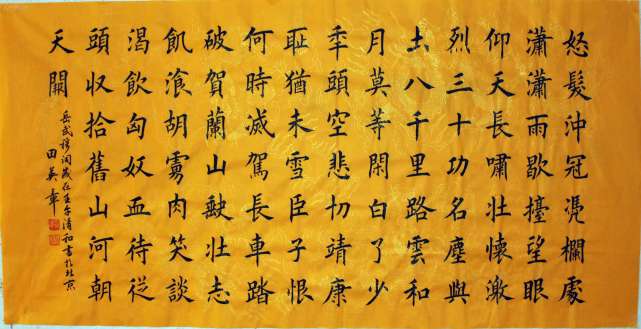 怒髮沖冠凴欄處
瀟瀟雨歇擡望眼
仰天長嘯壯懷激
烈三十功名塵與
土八千里路雲和
月莫等閑白了少
年頭空悲切靖康
耻猶未雪臣子恨
何時滅駕長車踏
破賀蘭山缺壯志
飢湌胡虜肉笑談
渴飲匈奴血待從
頭收拾舊山河朝
天闕
岳武穆詞歲在壬午清和書於北京
田英章